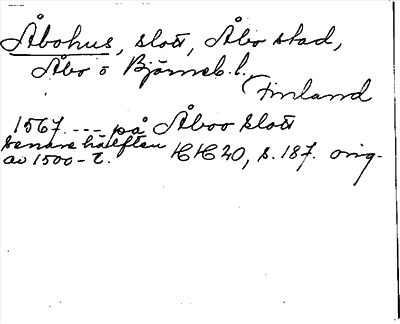 Åbohus, slott, Åbo stad,
Åbo o Björneb. l.
Finland
1567. --- på Åboo Slott
senare hälften
av 1500-t. HH 20, s. 187. orig.